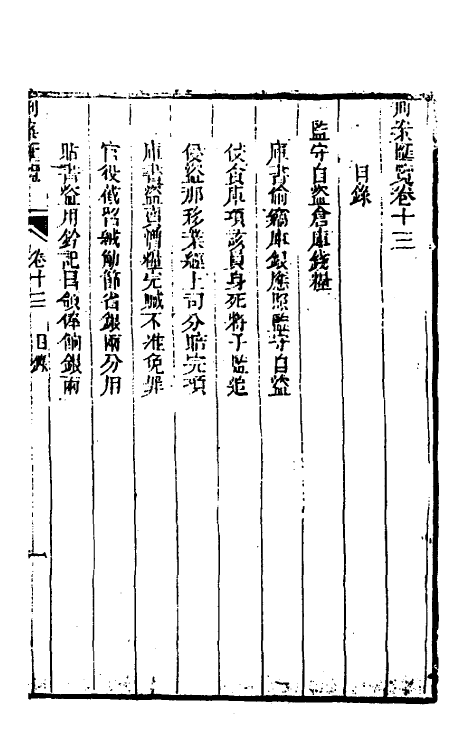 刑案匯覽卷十三
目錄
監守自盜倉庫錢糧
庫書偷竊庫銀應照監守自盜
侵食庫項該員身死將子監追
侵盜那移業經上司分賠完項
庫書盜賣漕糧完贓不准免罪
官役截留裁勻節省銀兩分用
貼書盜用鈐記冒領俸餉銀兩
刑案匯覽
卷十三 目錄
一